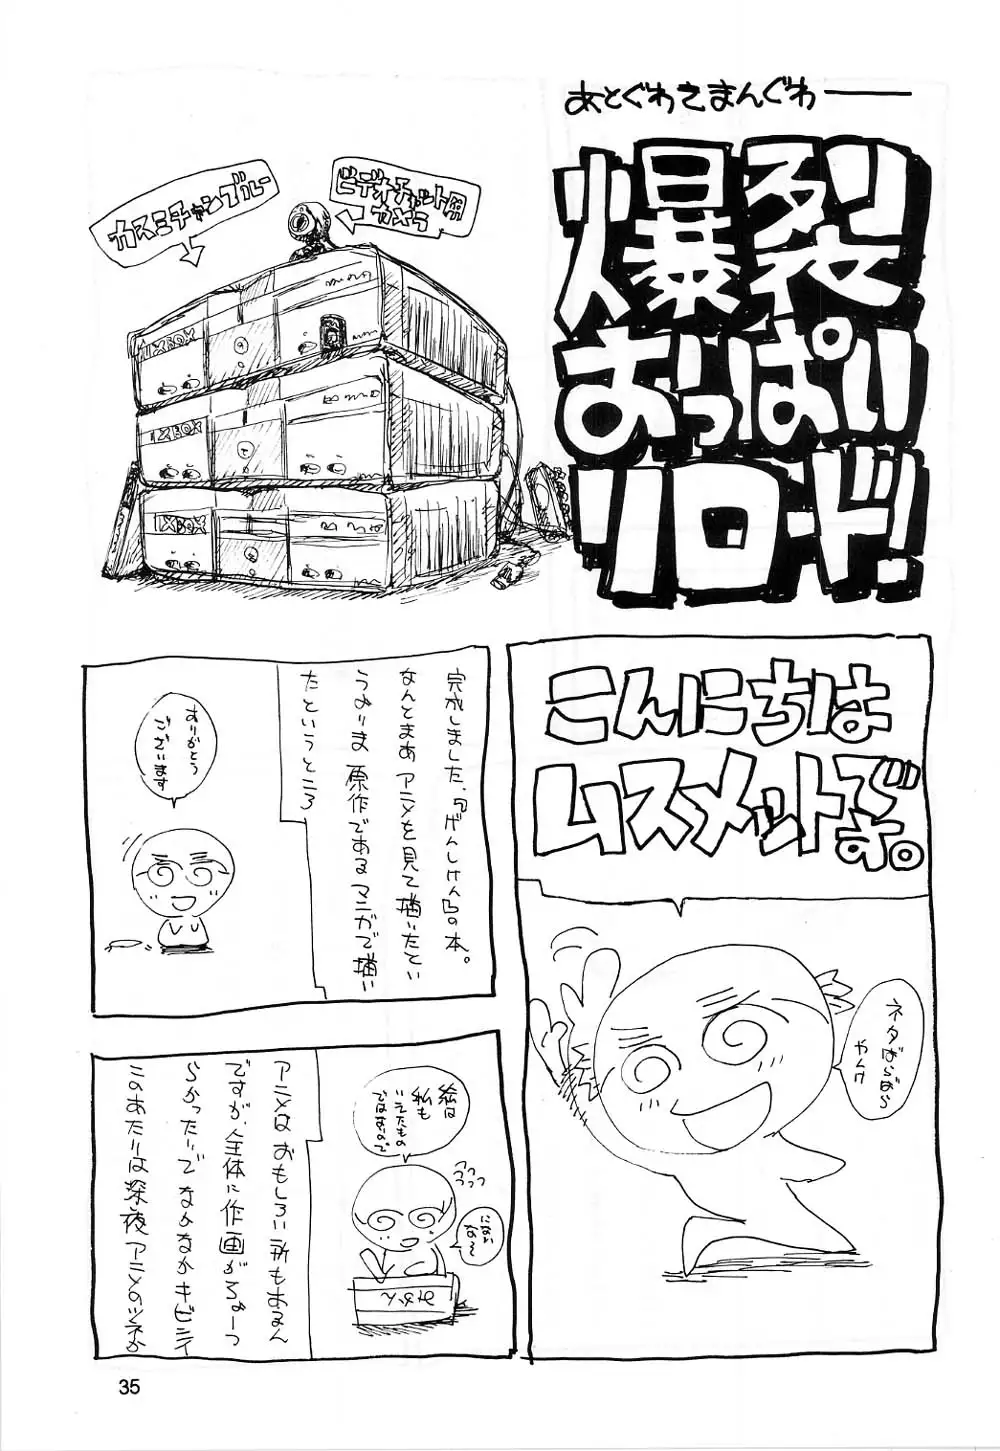 あとぐわきまんぐわ
爆裂
おっぱい
リロード!
ビデオチャット用
カメラ
カスミチャンブルー
XBOX
XBOX
XBOX
こんにちは
ムスメットです。
ネタばらばら
やんけ
完成しました、『げんしけん』の本。
なんとまあ アニメを見て描いたとい
うよりま 原作であるマンガで描い
たというところ
ありがとう
ございます
アニメはおもしろい所もあるん
ですが、全体に作画がちょーっ
らかったりでなかなかキビシイ
このあたりは深夜アニメのツネか
絵は
私も
いえたもの
ではないので
にない
な〜
みかん
35